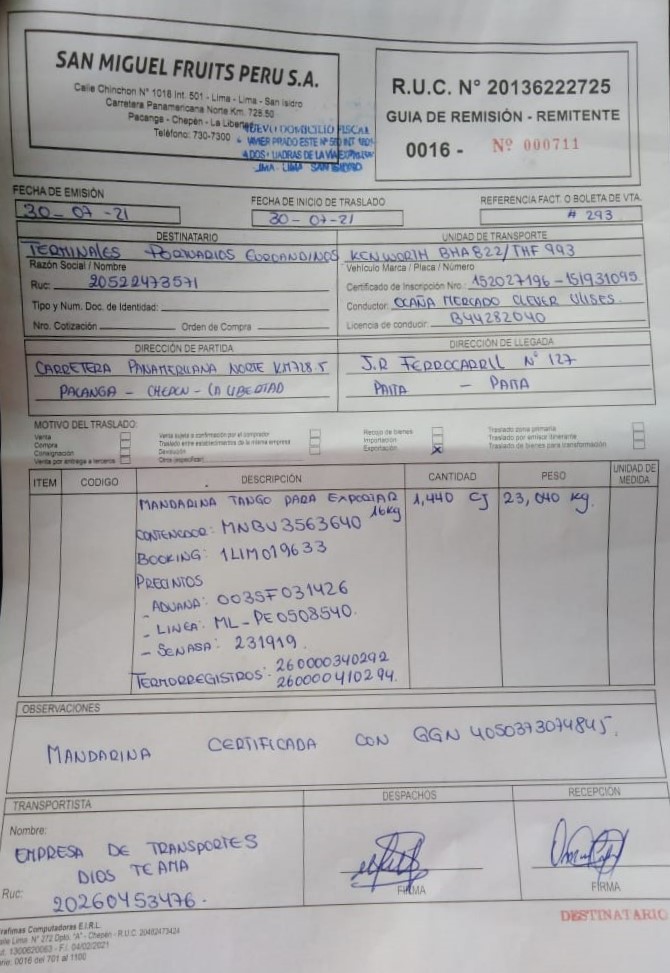 SAN MIGUEL FRUITS PERU S.A.
Calle Chinchon N° 1018 Int. 501 - Lima - Lima - San Isidro
Carretera Panamericana Norte Km. 728.50
Pacanga - Chepén - La Libertad
Teléfono: 730-7300
NUEVO DOMICILIO FISCAL
JAVIER PRADO ESTE N° INT
LIMA LIMA SAN ISIDRO
R.U.C. N° 20136222725
GUIA DE REMISIÓN - REMITENTE
0016 - Nº 000711
FECHA DE EMISIÓN
30-07-21
FECHA DE INICIO DE TRASLADO
30-07-21
REFERENCIA FACT. O BOLETA DE VTA.
# 293
DESTINATARIO
TERMINALES PORTUARIOS EUROANDINOS
Razón Social / Nombre
Ruc: 20522473571
Tipo y Num. Doc. de Identidad:
Nro. Cotización: Orden de Compra
UNIDAD DE TRANSPORTE
KENWORTH BHA822/THF 993
Vehículo Marca / Placa / Número
Certificado de Inscripción Nro.: 152027196-151931095
Conductor: OCAÑA MERCADO CLEVER ULISES
Licencia de conducir: B44282040
DIRECCIÓN DE PARTIDA
CARRETERA PANAMERICANA NORTE KM728.5
PACANGA - CHEPEN - LA LIBERTAD
DIRECCIÓN DE LLEGADA
J.R FERROCARRIL N° 127
PAITA - PAITA
MOTIVO DEL TRASLADO:
Venta
Compra
Consignación
Venta por entrega a terceros
Venta sujeta a confirmación por el comprador
Traslado entre establecimientos de la misma empresa
Devolución
Otros (especificar)
Recojo de bienes
Importación
Exportación X
Traslado zona primaria
Traslado por emisor itinerante
Traslado de bienes para transformación
ITEM CODIGO DESCRIPCIÓN CANTIDAD PESO UNIDAD DE MEDIDA
MANDARINA TANGO PARA EXPORTAR 1,440 CJ 23,040 Kg.
16kg
CONTENEDOR: MNBU3563640
BOOKING: 1LIM019633
PRECINTOS
- ADUANA: 0035F031426
- LINEA: ML-PE0508540.
- SENASA: 231919.
TERMORREGISTROS: 260000340292
260000410294.
OBSERVACIONES
MANDARINA CERTIFICADA CON GGN 4050373074845.
TRANSPORTISTA
Nombre:
EMPRESA DE TRANSPORTES
DIOS TE AMA
Ruc: 20260453476.
DESPACHOS
FIRMA
RECEPCIÓN
FIRMA
DESTINATARIO
Grafimas Computadoras E.I.R.L.
Calle Lima N° 272 Dpto. "A" - Chepén - R.U.C. 20482473424
1300620063 - F.I. 04/02/2021
Serie: 0016 del 701 al 1100